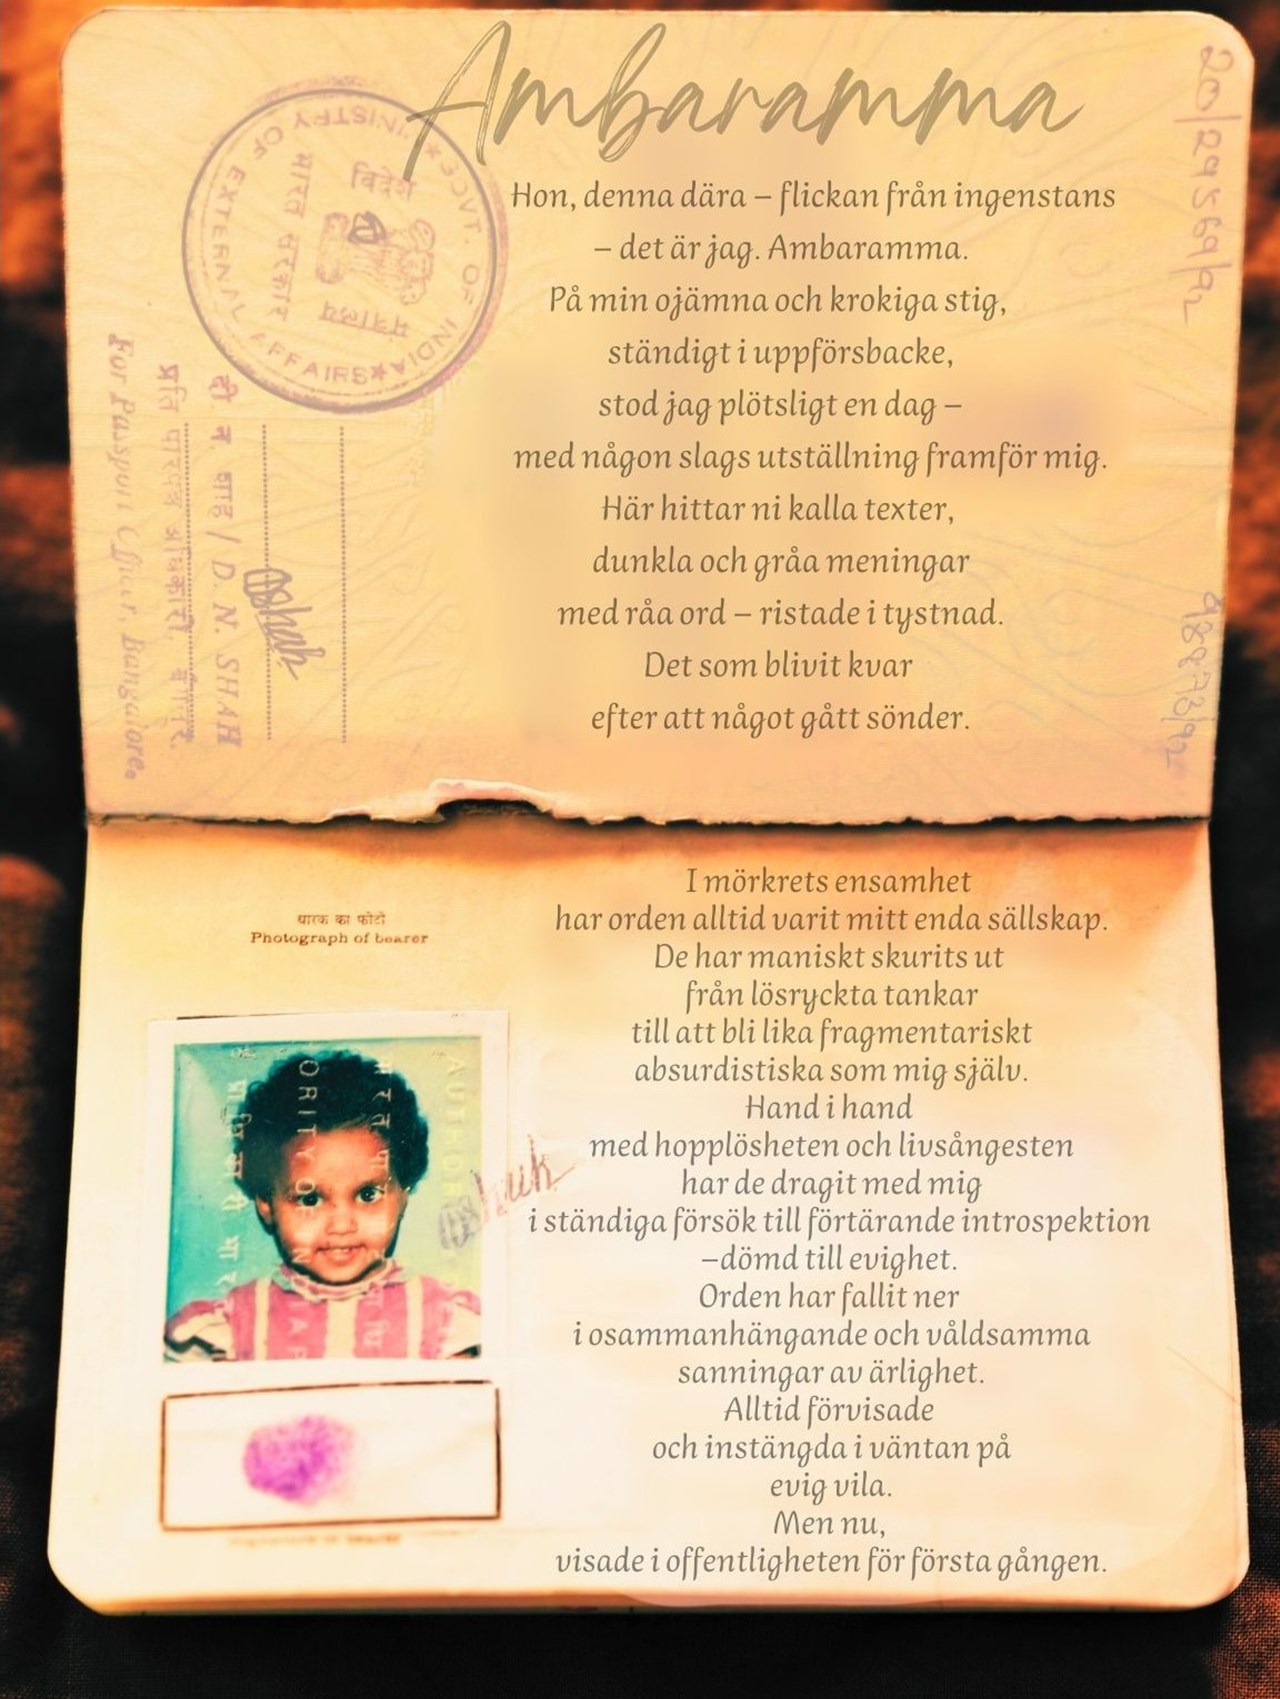 Ambaramma
Hon, denna dära – flickan från ingenstans
– det är jag. Ambaramma.
På min ojämna och krokiga stig,
ständigt i uppförsbacke,
stod jag plötsligt en dag –
med någon slags utställning framför mig.
Här hittar ni kalla texter,
dunkla och gråa meningar
med råa ord – ristade i tystnad.
Det som blivit kvar
efter att något gått sönder.
MINISTRY OF EXTERNAL AFFAIRS ★ GOVT. OF INDIA ★
विदेश
मंत्रालय
भारत सरकार
D. N. SHAH
For Passport Officer, Bangalore.
धारक का फोटो
Photograph of bearer
I mörkrets ensamhet
har orden alltid varit mitt enda sällskap.
De har maniskt skurits ut
från lösryckta tankar
till att bli lika fragmentariskt
absurdistiska som mig själv.
Hand i hand
med hopplösheten och livsångesten
har de dragit med mig
i ständiga försök till förtärande introspektion
–dömd till evighet.
Orden har fallit ner
i osammanhängande och våldsamma
sanningar av ärlighet.
Alltid förvisade
och instängda i väntan på
evig vila.
Men nu,
visade i offentligheten för första gången.